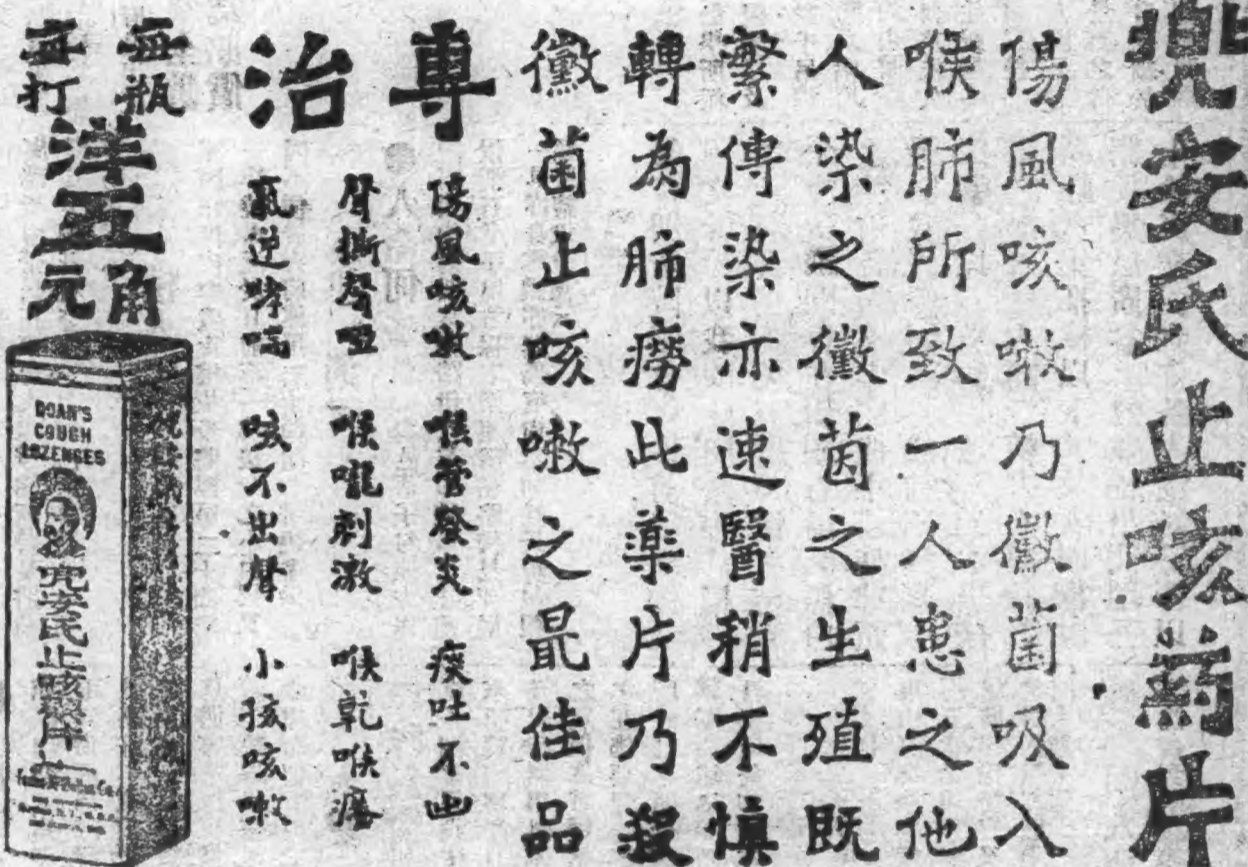 兜安氏止咳葯片
傷風咳嗽乃黴菌吸入
喉肺所致一人患之他
人染之黴茵之生殖既
繁傳染亦速醫稍不慎
轉為肺癆此藥片乃殺
黴菌止咳嗽之最佳品
專治
傷風咳嗽 喉管發炎 痰吐不出
聲撕聲啞 喉嚨刺激 喉乾喉癢
氣逆哮喘 咳不出聲 小孩咳嗽
每瓶洋五角
每打洋五元
DOAN'S
COUGH
LOZENGES
兜安氏止咳藥片